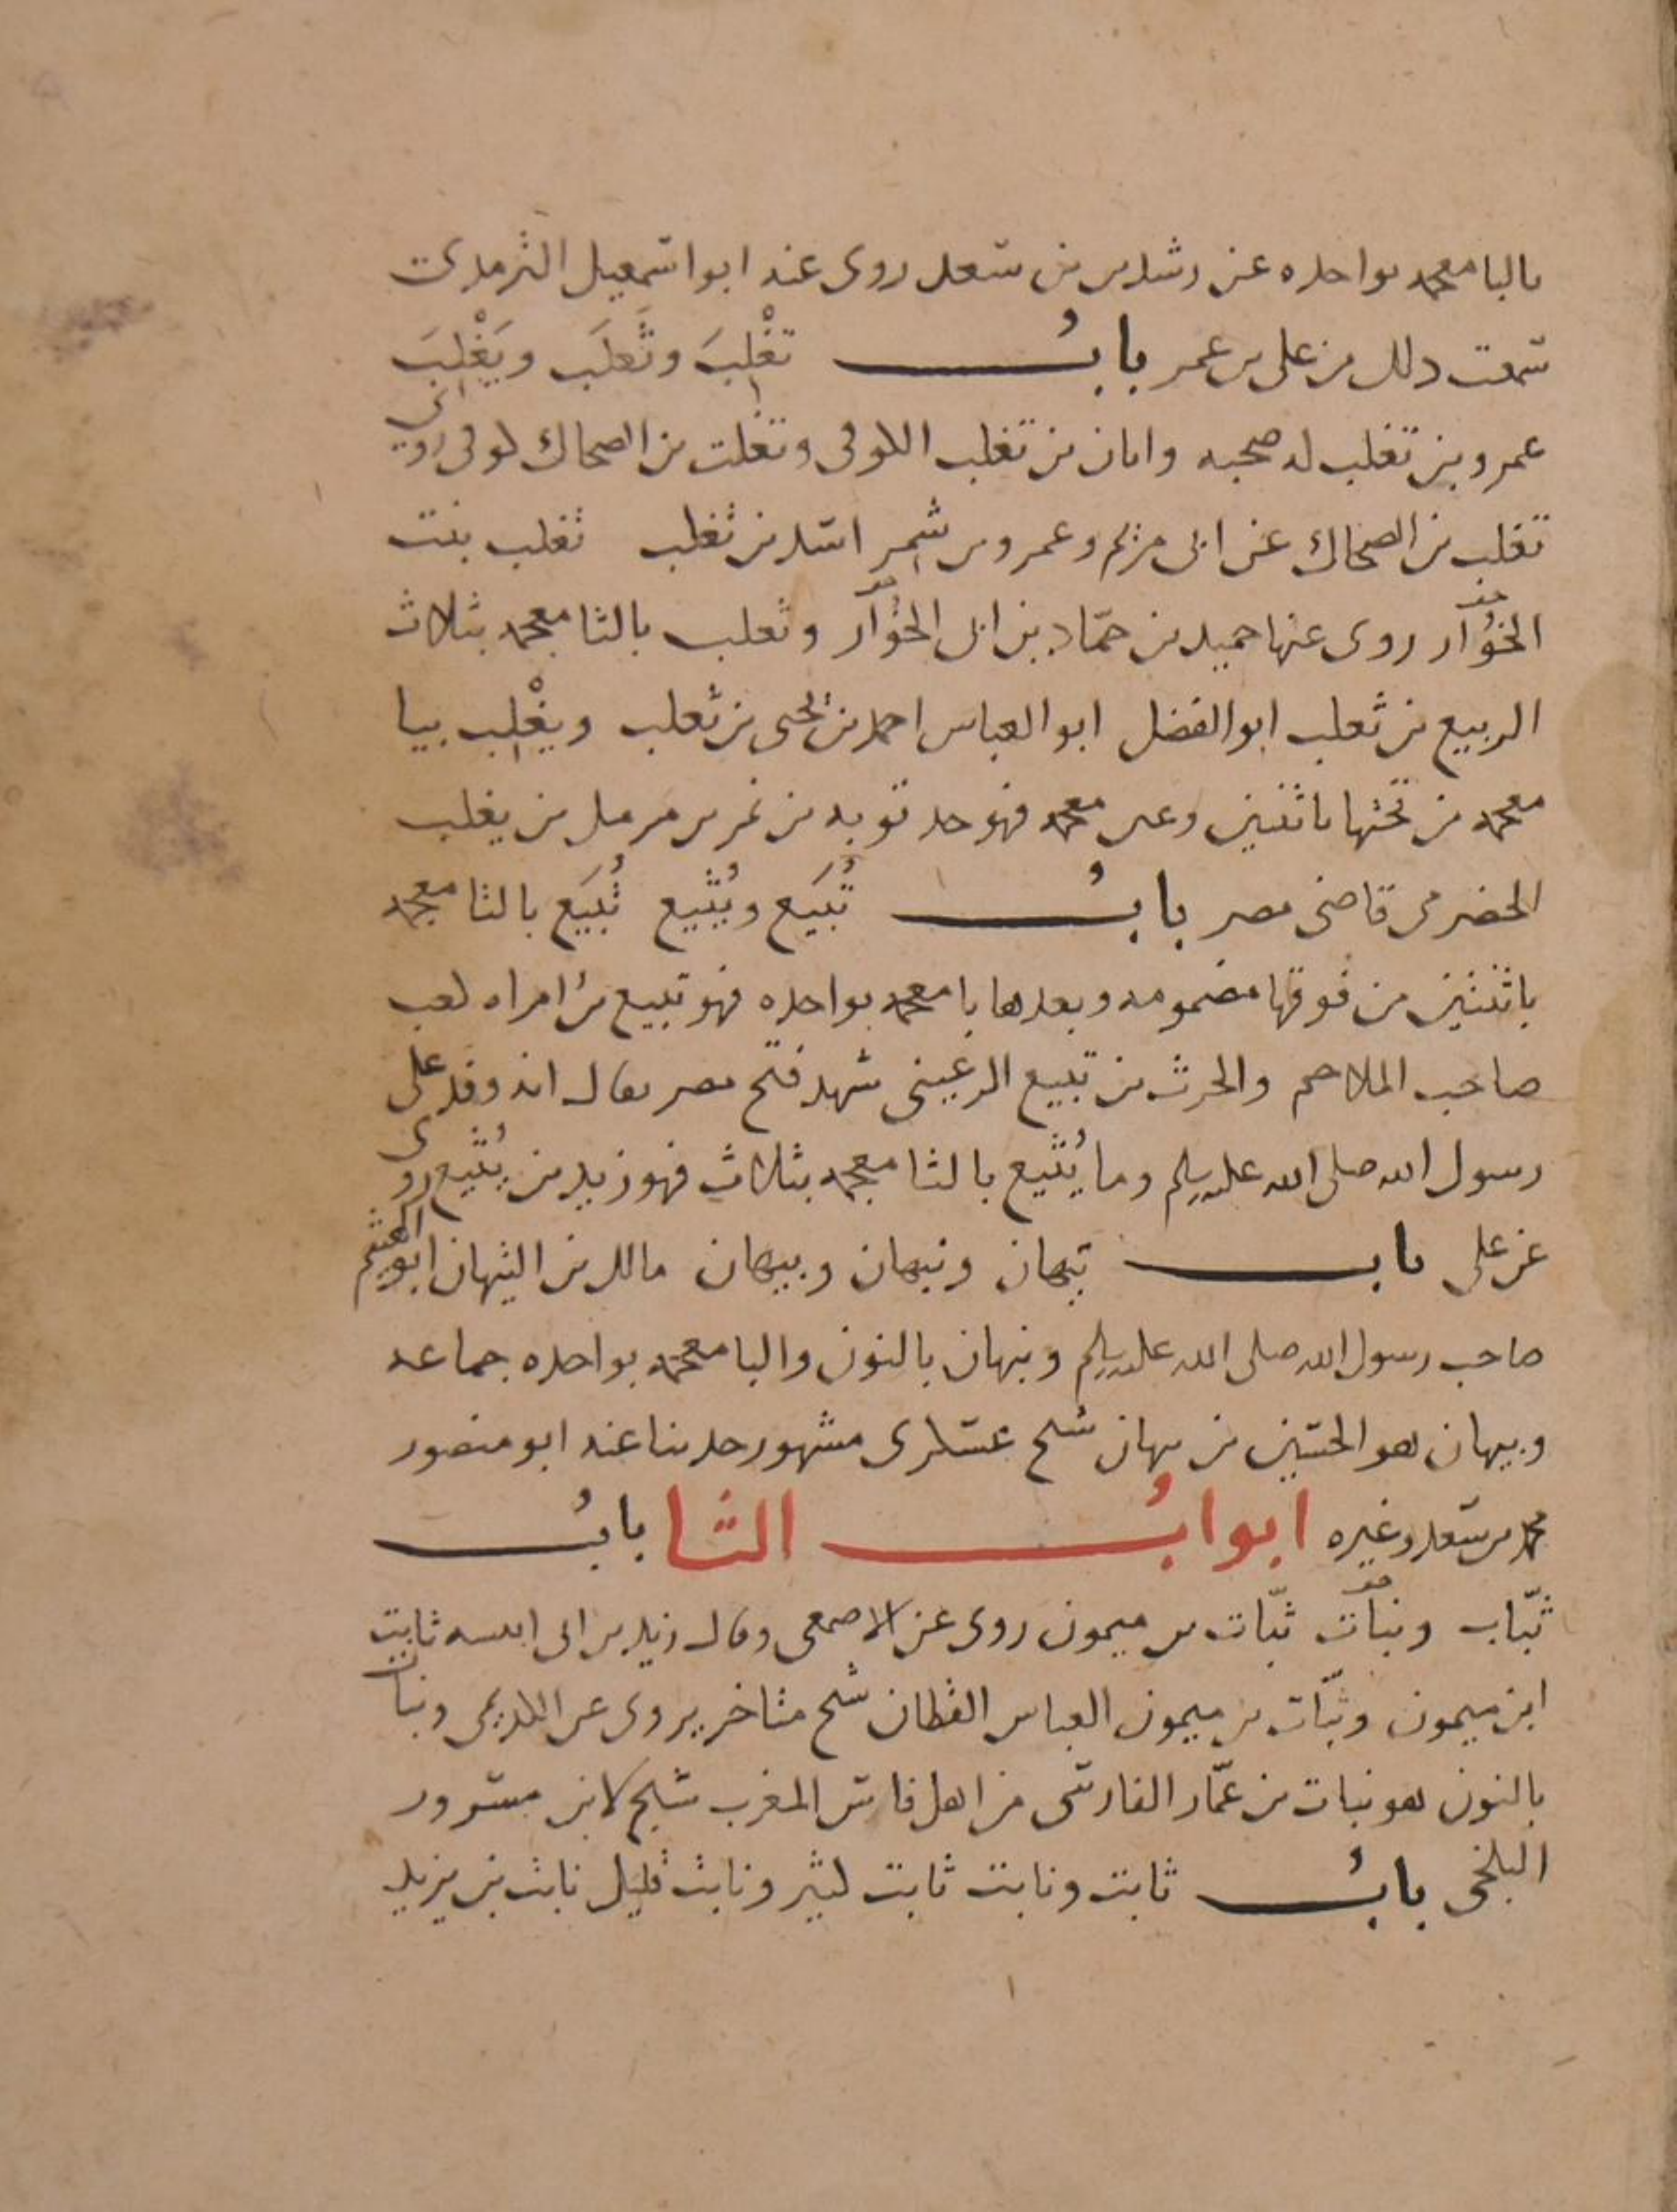 بالبا معجمه بواحده عن رشدين بن سعد روى عنه ابو اسمعيل الترمذي
سمعت ذلك من علي بن عمر بابُ تغْلِبَ وثَعلَب ويَغْلِبَ
عمرو بن تغلب له صحبه وابان بن تغلب الكوفي وتغلب بن الضحاك كوفي روى
تغلب بن الضحاك عن ابي مريم وعمرو بن شمر اسد بن تغلب تغلب بنت
الخُوَّار روى عنها حميد بن حمّاد بن ابي الخُوَّار وثعلب بالثا معجمه بثلاث
الربيع بن ثعلب ابو الفضل ابو العباس احمد بن يحيى بن ثعلب ويغْلِب بيا
معجمه من تحتها باثنتين وغين معجمه فهو جد توبه بن نمر بن حرمل بن يغلب
الحضرمي قاضي مصر بابُ تُبَيَع ويُثَيع تُبَيَع بالتا معجمه
باثنتين من فوقها مضمومه وبعدها با معجمه بواحده فهو تبيع بن امراه كعب
صاحب الملاحم والحرث بن تبيع الرعيني شهد فتح مصر يقال انه وفد على
رسول الله صلى الله عليه وسلم وما يُثَيع بالثا معجمه بثلاث فهو زيد بن يُثَيع روى
عن علي باب تيهان ونبهان وبيهان مالك بن التيهان ابو الهيثم
صاحب رسول الله صلى الله عليه وسلم ونبهان بالنون والبا معجمه بواحده جماعه
وبيهان هو الحسين بن بيهان شيخ عسكري مشهور حدثنا عنه ابو منصور
محمد بن سعد وغيره ابوابُ الثا بابُ
ثبّات ونبات ثبّات بن ميمون روى عن الاصمعي وقال زيد بن ابي انيسه ثابت
ابن ميمون وثبّات بن ميمون العباس القطان شيخ متاخر يروي عن الكديمي ونبات
بالنون هو نبات بن عمّار الفارسي من اهل فاس المغرب شيخ لابن مسرور
البلخي بابُ ثابت ونابت ثابت كثير ونابت قليل نابت بن يزيد